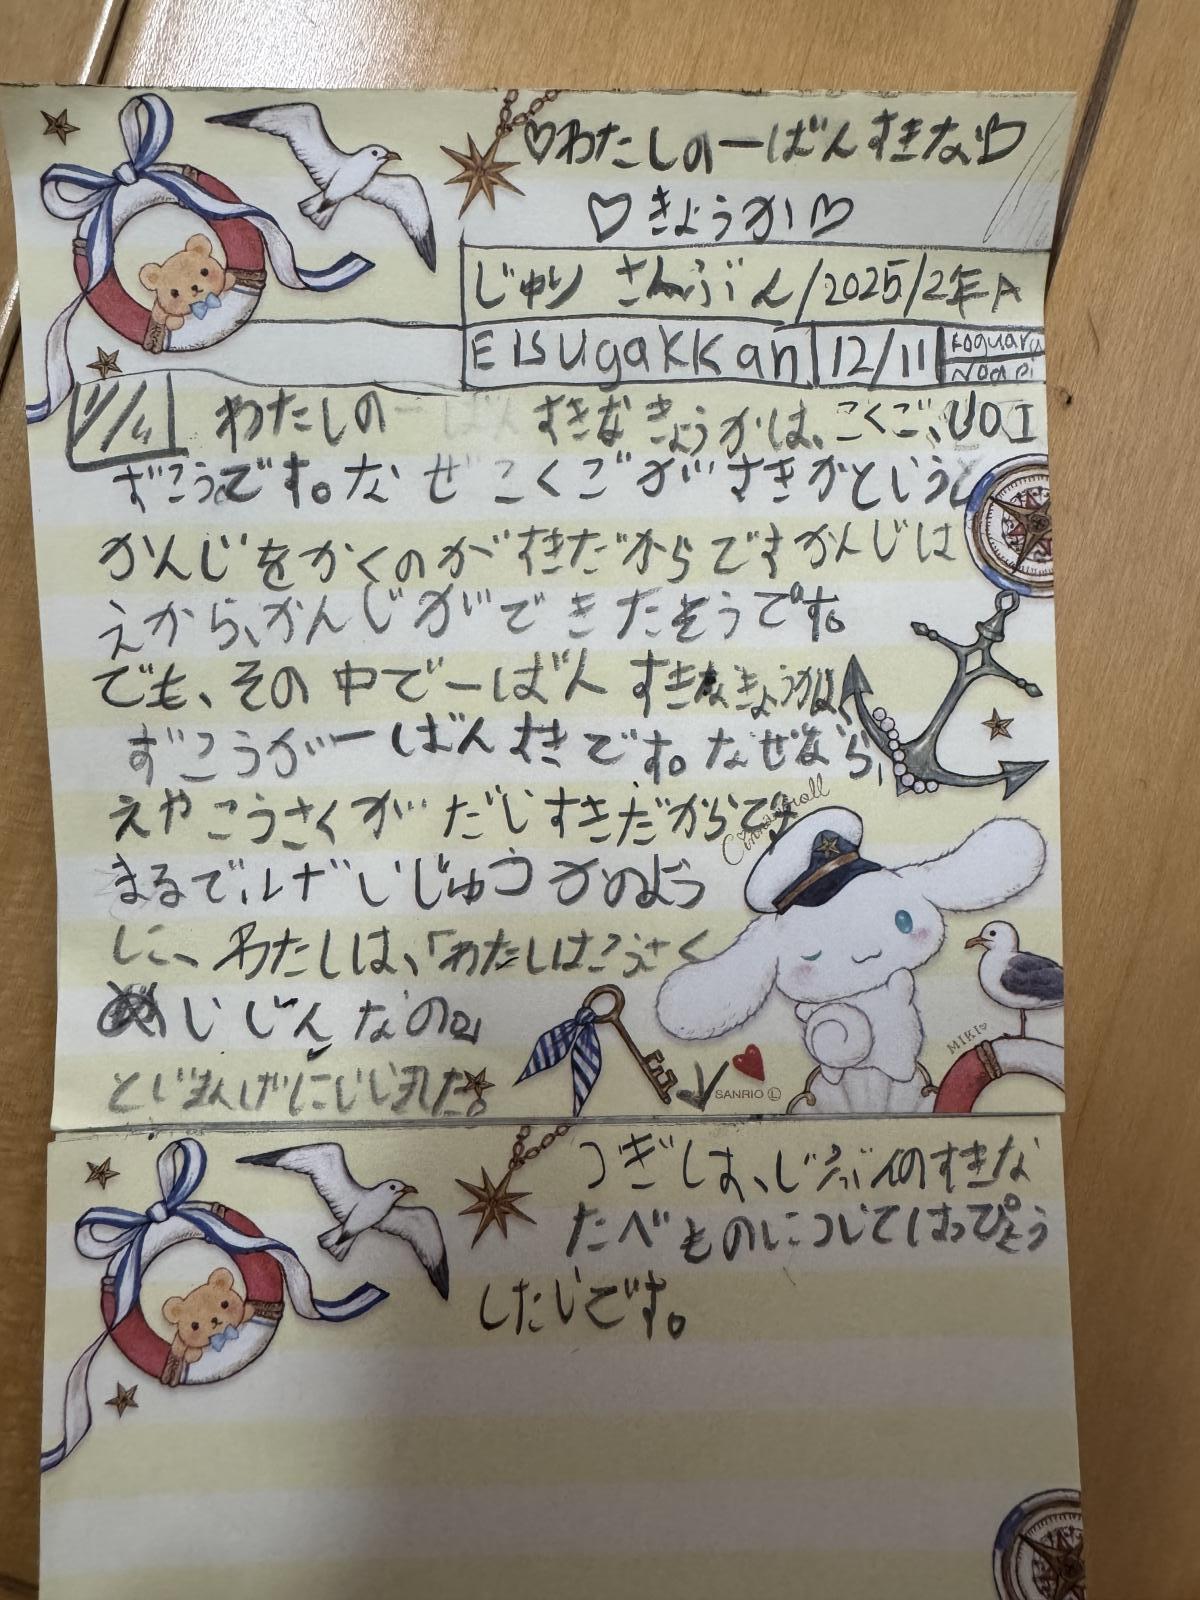 ♡わたしの一ばんすきな♡
♡きょうか♡
じゅり さんぶん/2025/2年A
EISugakkan 12/11
わたしの一ばんすきなきょうかは、こくご、UOI
ずこうです。なぜこくごがすきかというと
かんじをかくのがすきだからですかんじは
えから、かんじができたそうです。
でも、その中で一ばんすきなきょうかは、
ずこうが一ばんすきです。なぜなら、
えやこうさくがだいすきだからです
まるで、
のよう
に、わたしは、「わたしはこうさく
めいじんなの。」
とじまんげにいいました。
Cinnamoroll
MIKI♡
SANRIO Ⓛ
つぎは、じぶんのすきな
たべものについてはっぴょう
したいです。